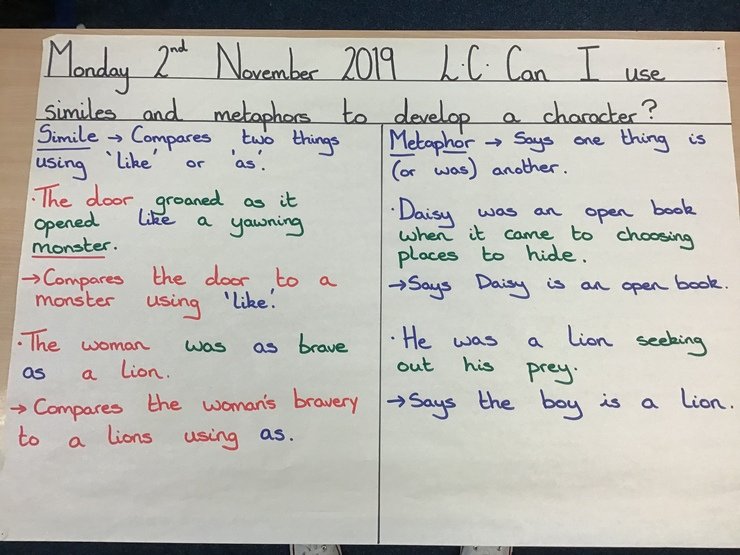 Monday 2nd November 2019 L.C. Can I use
similes and metaphors to develop a character?
Simile → Compares two things
using 'like' or 'as'.
·The door groaned as it
opened like a yawning
monster.
→Compares the door to a
monster using 'like'.
·The woman was as brave
as a lion.
→ Compares the woman's bravery
to a lions using as.
Metaphor → Says one thing is
(or was) another.
·Daisy was an open book
when it came to choosing
places to hide.
→Says Daisy is an open book.
·He was a lion seeking
out his prey.
→Says the boy is a lion.